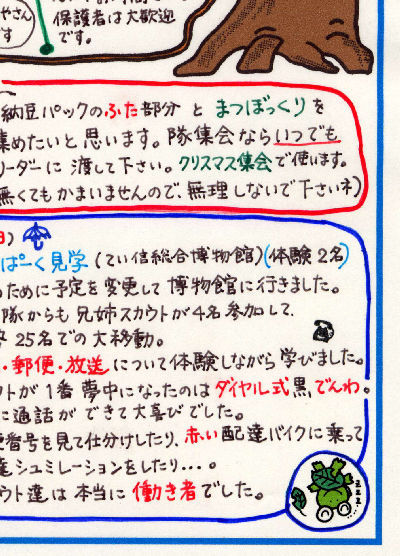 やさん
す
保護者は大歓迎
です。
納豆パックのふた部分 と まつぼっくりを
集めたいと思います。隊集会ならいつでも
リーダーに 渡して下さい。クリスマス集会で使います。
無くてもかまいませんので、無理しないで下さいネ)
日)
ぱーく見学 (てい信総合博物館)(体験2名)
ために予定を変更して博物館に行きました。
隊からも兄姉スカウトが4名参加して、
25名での大移動。
・郵便・放送について体験しながら学びました。
ウトが1番夢中になったのはダイヤル式黒でんわ。
に通話ができて大喜びでした。
番号を見て仕分けしたり、赤い配達バイクに乗って
達シュミレーションをしたり...。
ウト達は本当に働き者でした。
zzz...